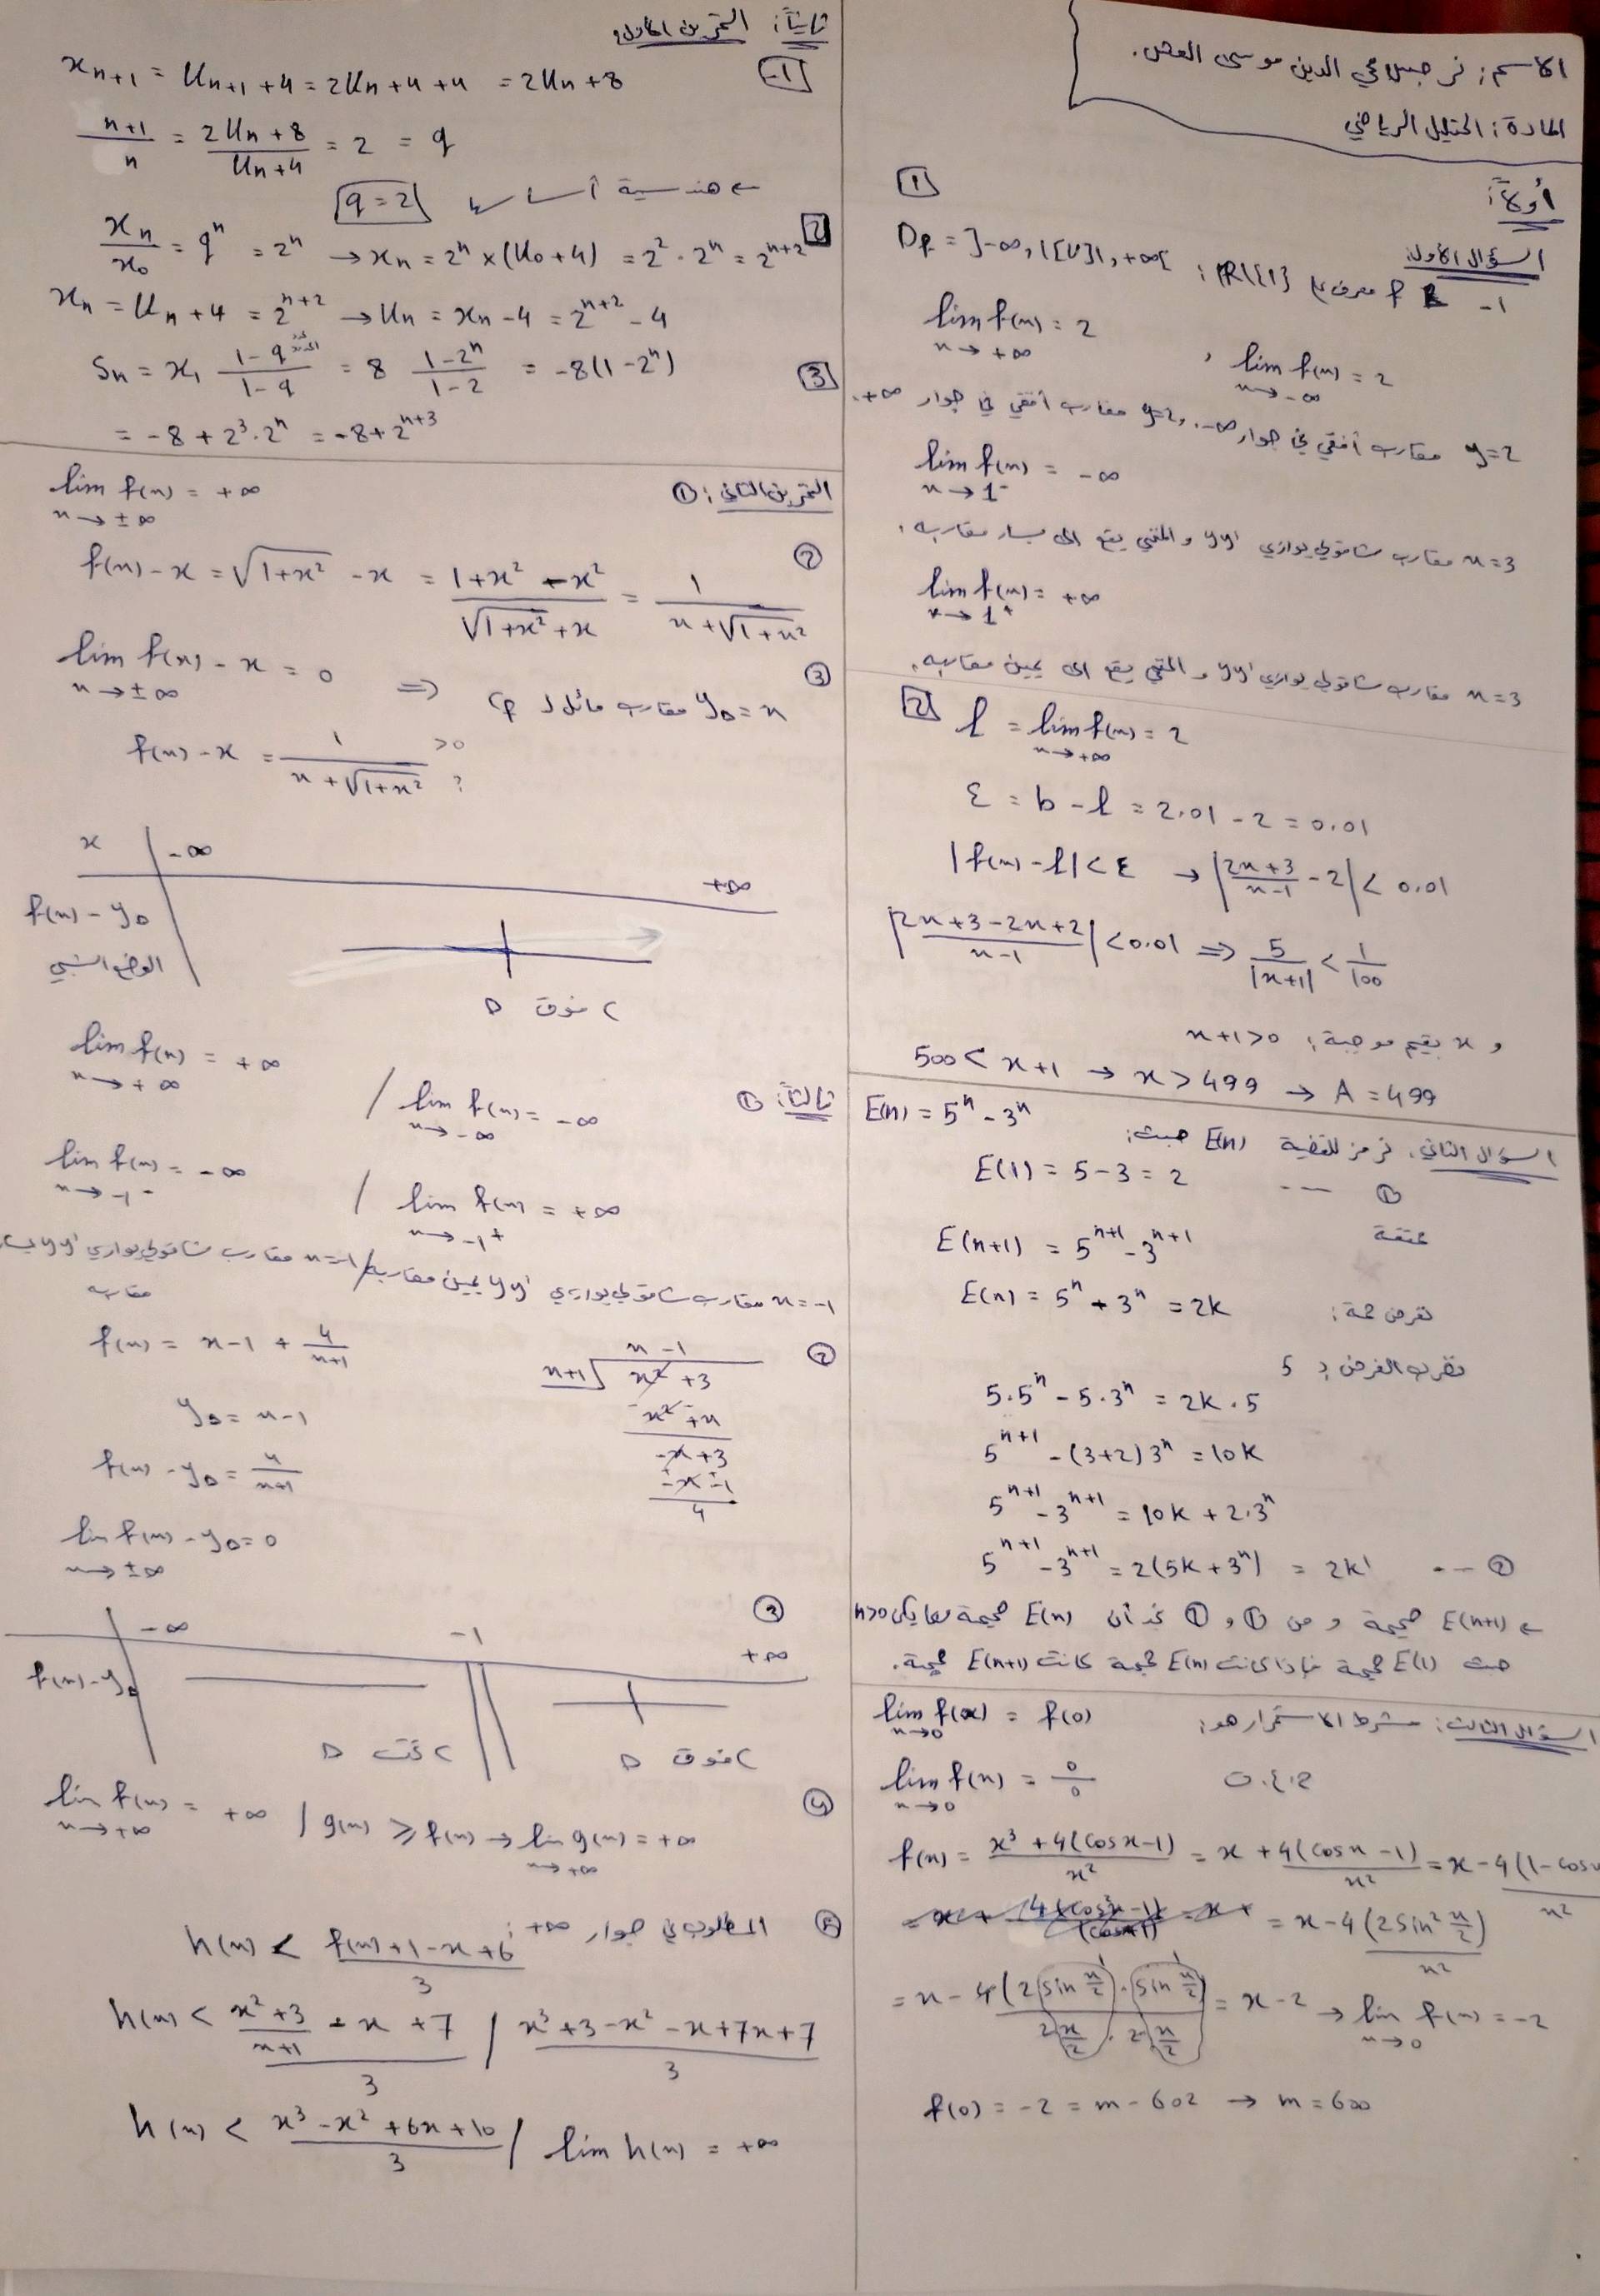 الاسم: نرجس محي الدين موسى العص.
المادة: التحليل الرياضي
أولاً:
السؤال الأول:
[1]
-1 f معرف على R\{1} :
Df = ]-∞,1[U]1,+∞[
lim f(x) = 2
x→-∞
,
lim f(x) = 2
x→+∞
y=2 مقارب أفقي في جوار -∞، و y=2 مقارب أفقي في جوار +∞.
lim f(x) = -∞
x→1⁻
x=3 مقارب شاقولي يوازي yy' والمنحني يقع الى يسار مقاربه.
lim f(x) = +∞
x→1⁺
x=3 مقارب شاقولي يوازي yy' و المنحني يقع الى يمين مقاربه.
[2]
l = lim f(x) = 2
x→+∞
ε = b - l = 2.01 - 2 = 0.01
|f(x) - l| < ε → |(2x+3)/(x-1) - 2| < 0.01
|(2x+3-2x+2)/(x-1)| < 0.01 ⇒ 5/|x+1| < 1/100
و x بقيم موجبة: x+1>0
500 < x+1 → x > 499 → A = 499
السؤال الثاني: نرمز للقضية E(n) حيث: E(n) = 5ⁿ - 3ⁿ
E(1) = 5 - 3 = 2 --- ①
محققة
E(n+1) = 5ⁿ⁺¹ - 3ⁿ⁺¹
نفرض صحة: E(n) = 5ⁿ + 3ⁿ = 2k
نضرب الفرض بـ 5
5.5ⁿ - 5.3ⁿ = 2k.5
5ⁿ⁺¹ - (3+2)3ⁿ = 10k
5ⁿ⁺¹ - 3ⁿ⁺¹ = 10k + 2.3ⁿ
5ⁿ⁺¹ - 3ⁿ⁺¹ = 2(5k + 3ⁿ) = 2k' --- ②
← E(n+1) صحيحة و من ① و ② نجد أن E(n) صحيحة مهما يكن n>0
حيث E(1) صحيحة فإذا كانت E(n) صحيحة كانت E(n+1) صحيحة.
السؤال الثالث: شرط الاستمرار هو: lim f(x) = f(0)
x→0
lim f(x) = 0/0
x→0
f(x) = (x³ + 4(cos x - 1))/x² = x + 4(cos x - 1)/x² = x - 4(1 - cos x)/x²
= x - 4(2 sin² x/2)/x²
= x - 4(2 sin x/2 . sin x/2)/(2 x/2 . 2 x/2) = x - 2 → lim f(x) = -2
x→0
f(0) = -2 = m - 602 → m = 600
ثانياً: التمرين الأول:
[-1]
xₙ₊₁ = Uₙ₊₁ + 4 = 2Uₙ + 4 + 4 = 2Uₙ + 8
n+1/n = (2Uₙ + 8)/(Uₙ + 4) = 2 = q
← هندسية أساسها q = 2
[2]
xₙ/x₀ = qⁿ = 2ⁿ → xₙ = 2ⁿ × (U₀ + 4) = 2² . 2ⁿ = 2ⁿ⁺²
xₙ = Uₙ + 4 = 2ⁿ⁺² → Uₙ = xₙ - 4 = 2ⁿ⁺² - 4
[3]
Sₙ = x₁ (1 - q)/(1 - q) = 8 (1 - 2ⁿ)/(1 - 2) = -8(1 - 2ⁿ)
= -8 + 2³ . 2ⁿ = -8 + 2ⁿ⁺³
التمرين الثاني: ①
lim f(x) = +∞
x→±∞
②
f(x) - x = √(1+x²) - x = (1+x² - x²)/(√(1+x²) + x) = 1/(x + √(1+x²))
③
lim f(x) - x = 0 ⇒ y_D = x مقارب مائل لـ Cf
x→±∞
f(x) - x = 1/(x + √(1+x²)) >0 ?
x | -∞ +∞
f(x) - y_D | +
الوضع النسبي | C فوق D
ثالثاً: ①
lim f(x) = +∞ / lim f(x) = -∞
x→+∞ x→-∞
lim f(x) = -∞ / lim f(x) = +∞
x→-1⁻ x→-1⁺
x=-1 مقارب شاقولي يوازي yy' يمين مقاربه / x=-1 مقارب شاقولي يوازي yy'
مقاربه
②
x - 1
x+1 | x² + 3
x² + x
-x + 3
-x - 1
4
f(x) = x - 1 + 4/(x+1)
y_D = x - 1
f(x) - y_D = 4/(x+1)
lim f(x) - y_D = 0
x→±∞
③
-∞ -1 +∞
f(x) - y_D | - || +
C تحت D || C فوق D
④
lim f(x) = +∞ / g(x) ≥ f(x) → lim g(x) = +∞
x→+∞ x→+∞
⑤ المطلوب في جوار +∞:
h(x) < (f(x) + 1 - x + 6)/3
h(x) < ((x² + 3)/(x+1) - x + 7)/3 / (x³ + 3 - x² - x + 7x + 7)/3
h(x) < (x³ - x² + 6x + 10)/3 / lim h(x) = +∞